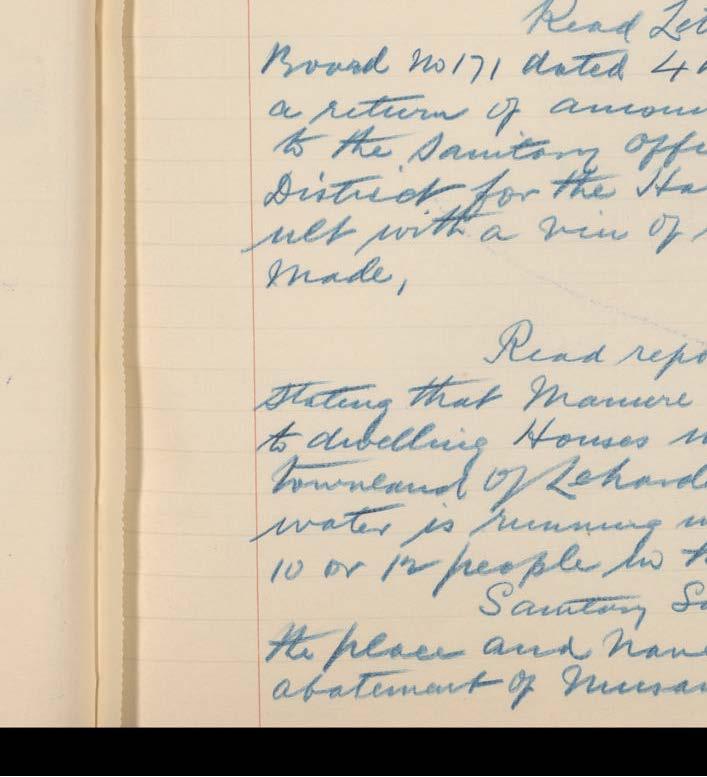 Read Let
Board No 171 dated 4
a return of amou
to the Sanitary Offi
District for the Ha
ult with a view of
Made,
Read repo
Stating that Manure
to dwelling Houses
townland of
water is running
10 or 12 people in
Sanitary S
the place and have
abatement of Nuisan